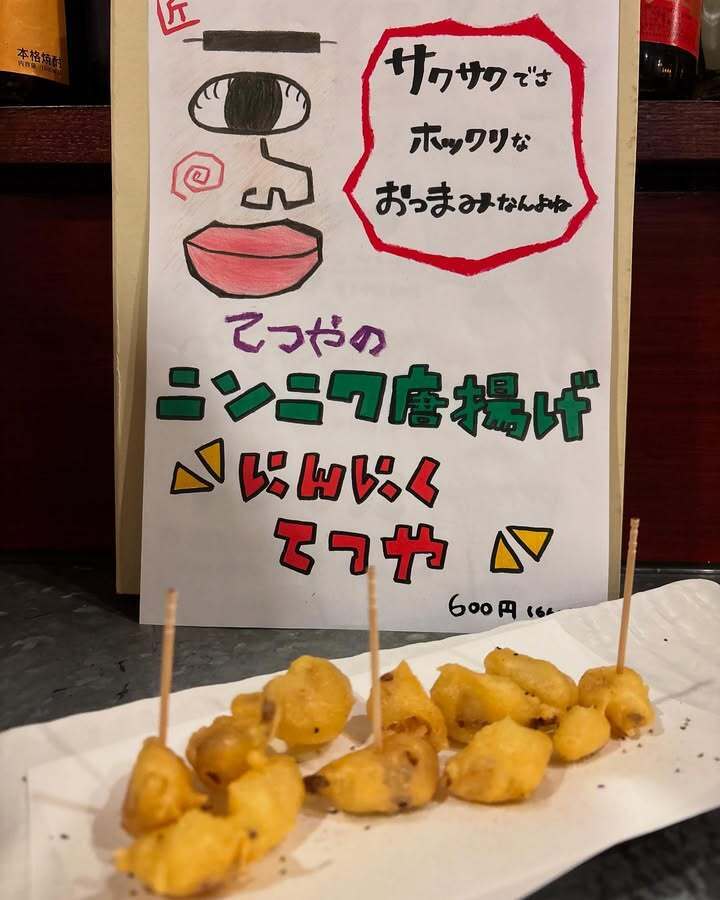 匠
本格焼酎
サクサクでさ
ホックリな
おつまみなんよね
てつやの
ニンニク唐揚げ
にんにく
てつや
600円